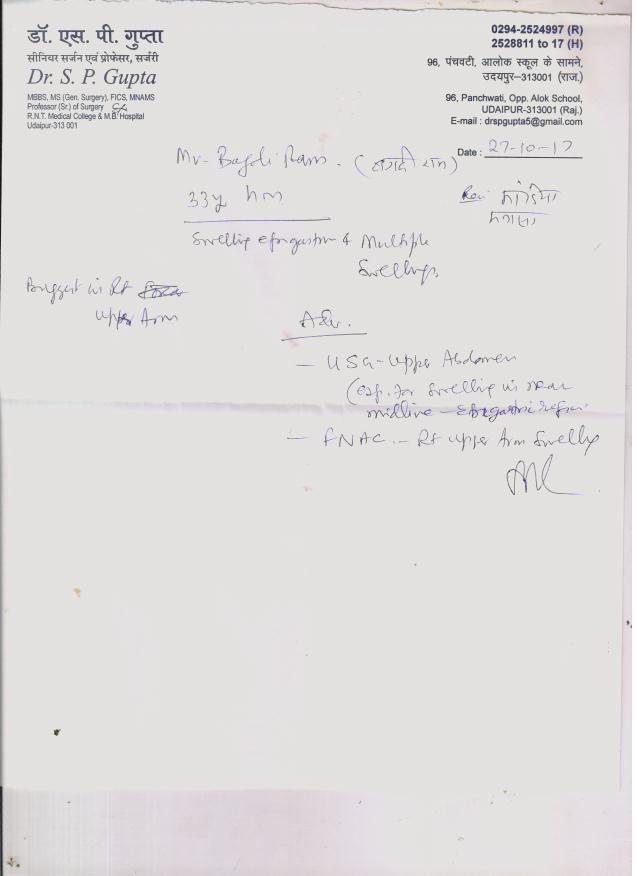 डॉ. एस. पी. गुप्ता
सीनियर सर्जन एवं प्रोफेसर, सर्जरी
Dr. S. P. Gupta
MBBS, MS (Gen. Surgery), FICS, MNAMS
Professor (Sr.) of Surgery Ex
R.N.T. Medical College & M.B. Hospital
Udaipur-313 001
0294-2524997 (R)
2528811 to 17 (H)
96, पंचवटी, आलोक स्कूल के सामने,
उदयपुर–313001 (राज.)
96, Panchwati, Opp. Alok School,
UDAIPUR-313001 (Raj.)
E-mail : drspgupta5@gmail.com
Date : 27-10-17
Mr- Ram. (राम)
33y
Swelling & Multiple
Swellings
Biggest in Rt
Upper Arm
Adv.
– USG - Upper Abdomen
(esp. for Swelling in near
midline – epigastric region
– FNAC. – Rt upper Arm Swelling